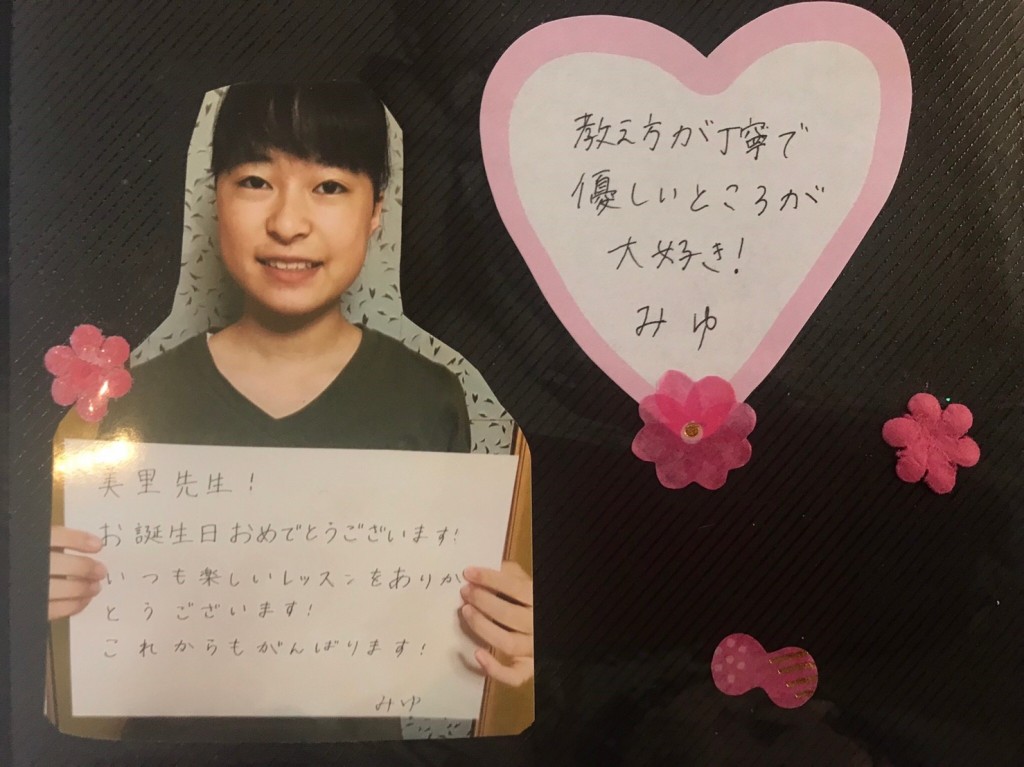 美里先生！
お誕生日おめでとうございます！
いつも楽しいレッスンをありが
とうございます！
これからもがんばります！
みゆ
教え方が丁寧で
優しいところが
大好き！
みゆ